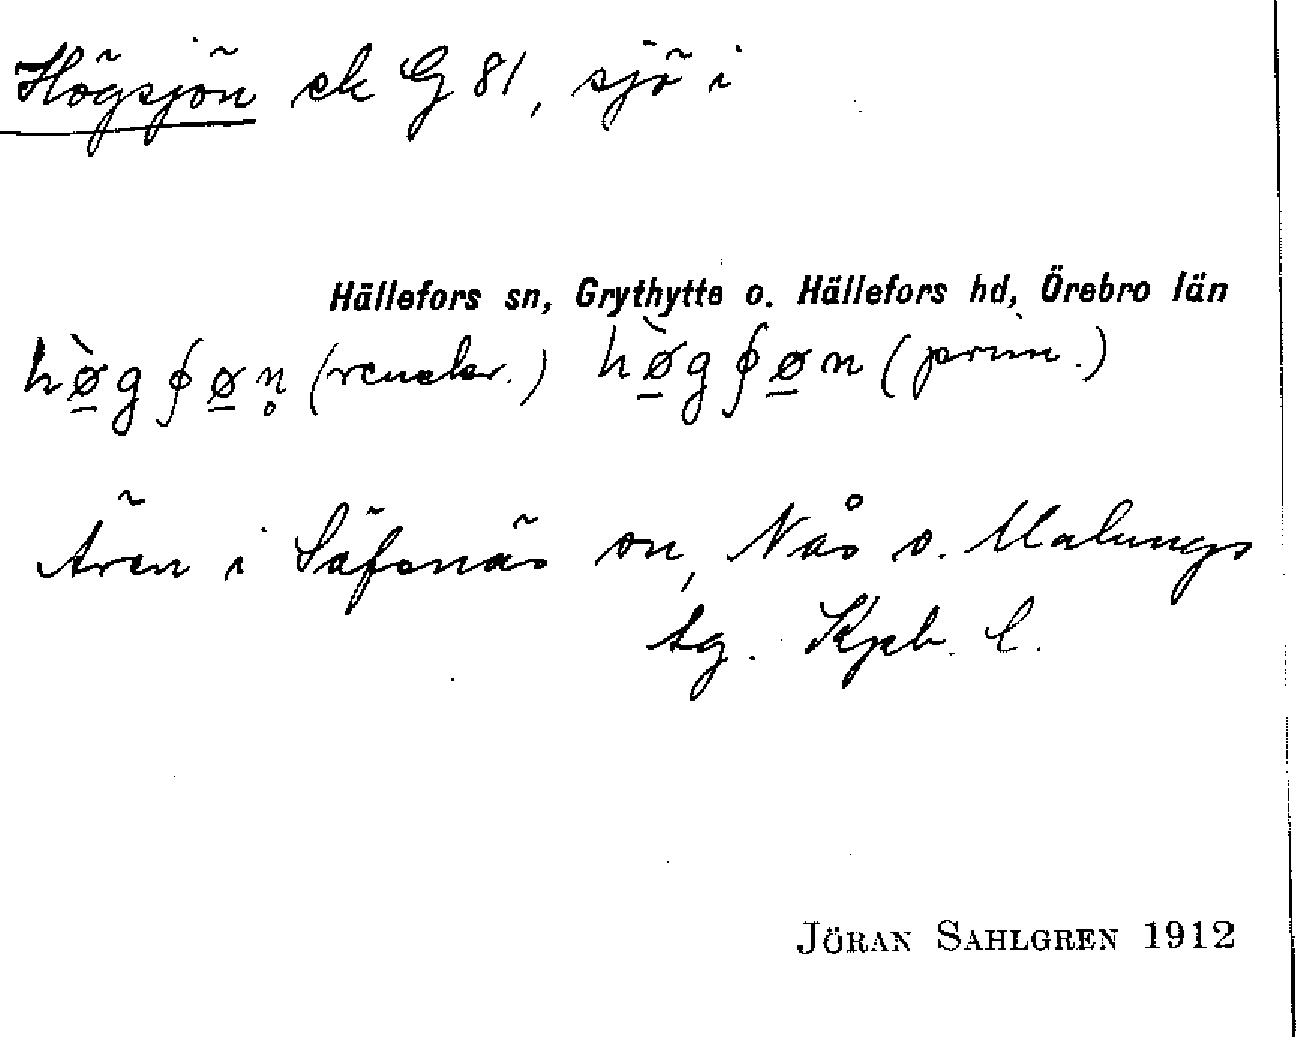 Högsjön ek G 81, sjö i
Hällefors sn, Grythytte o. Hällefors hd, Örebro län
hø̲̀gʄø̲n̥ (recular.) hø̲̀gʄø̲n (prim.)
Ären i Säfsnäs sn, Nås o. Malungs
tg. Kpb. l.
JÖRAN SAHLGREN 1912